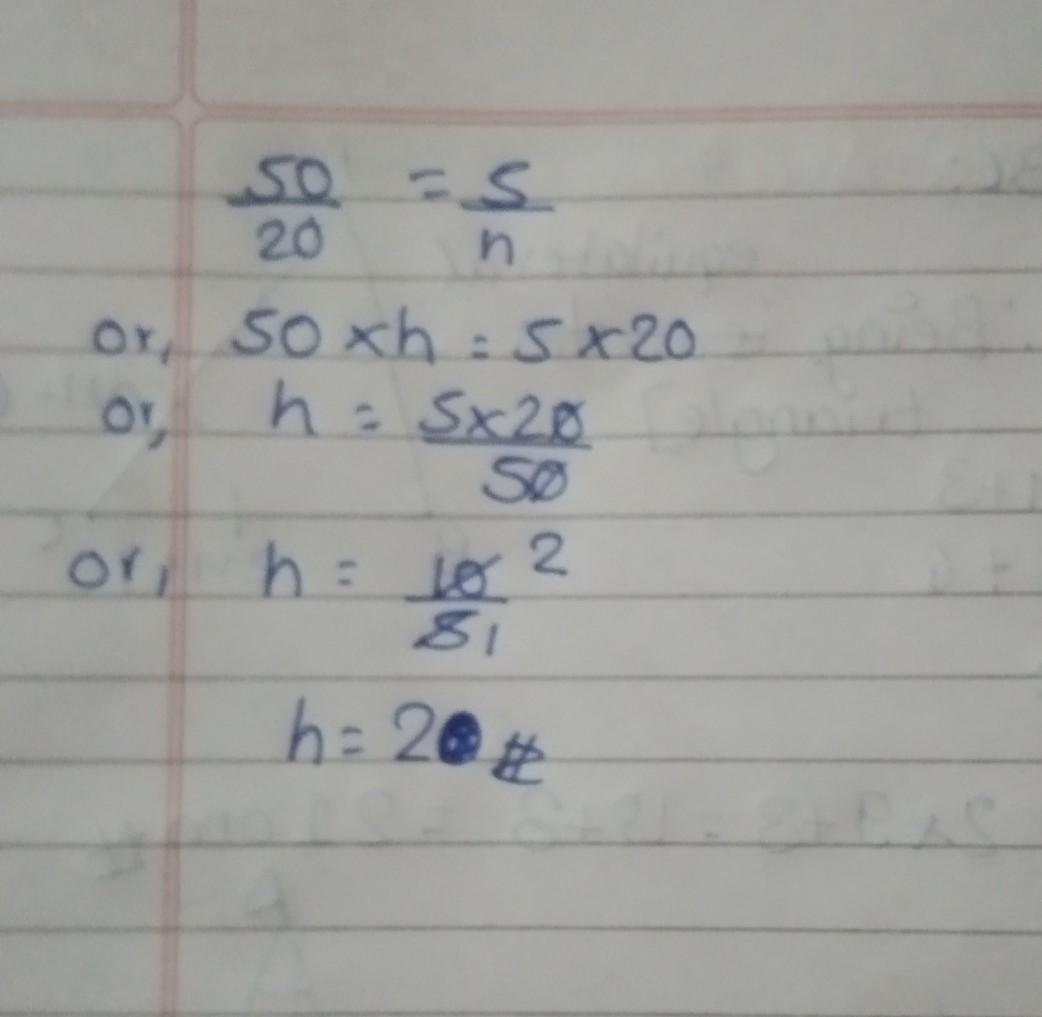 50/20 = 5/h
or, 50 × h = 5 × 20
or, h = 5×20/50
or, h = 10 2/5 1
h = 2 #